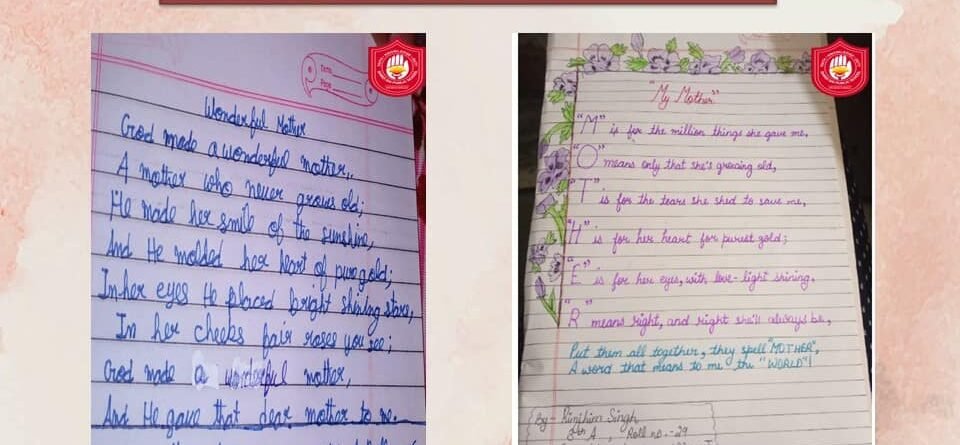 Wonderful Mother
God made a wonderful mother,
A mother who never grows old;
He made her smile of the sunshine,
And He molded her heart of pure gold;
In her eyes He placed bright shining stars,
In her cheeks fair roses you see;
God made a wonderful mother,
And He gave that dear mother to me.
"My Mother"
"M" is for the million things she gave me,
"O" means only that she's growing old,
"T" is for the tears she shed to save me,
"H" is for her heart for purest gold;
"E" is for her eyes, with love-light shining,
"R" means right, and right she'll always be,
Put them all together, they spell "MOTHER",
A word that means to me the "WORLD"!
By - Rimjhim Singh
8th A, Roll no. - 29